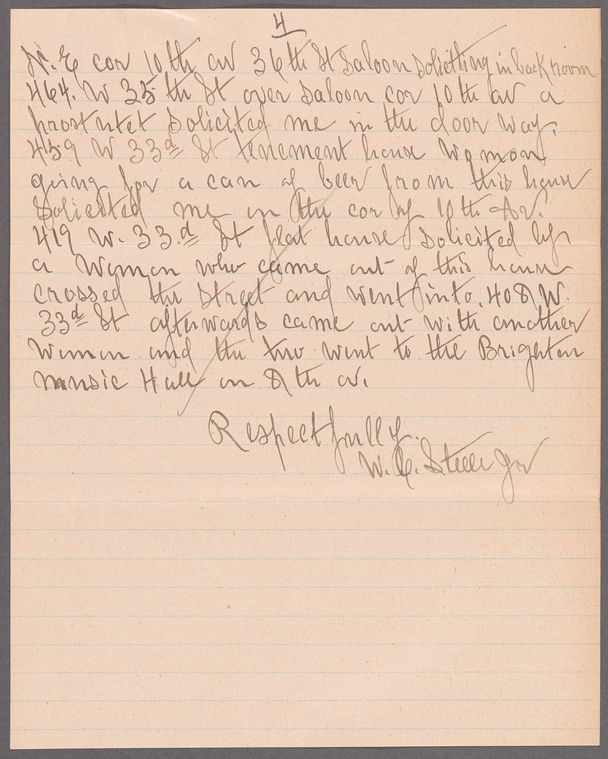 4
N. E cor 10th av 36th St Saloon Soliciting in back room
464. W 35th St over Saloon cor 10th av a
prostutet Solicited me in the door way.
459 W 33d St tenement house Woman
going for a can of beer from this house
Solicited me on the cor of 10th Av.
419 W. 33.d St flat house Solicited by
a Woman who came out of this house
crossed the Street and went into 408 W.
33d St afterwards came out with another
Woman and the two went to the Brighton
Music Hall on 8th av.
Respectfully.
W. C. Steele Jr